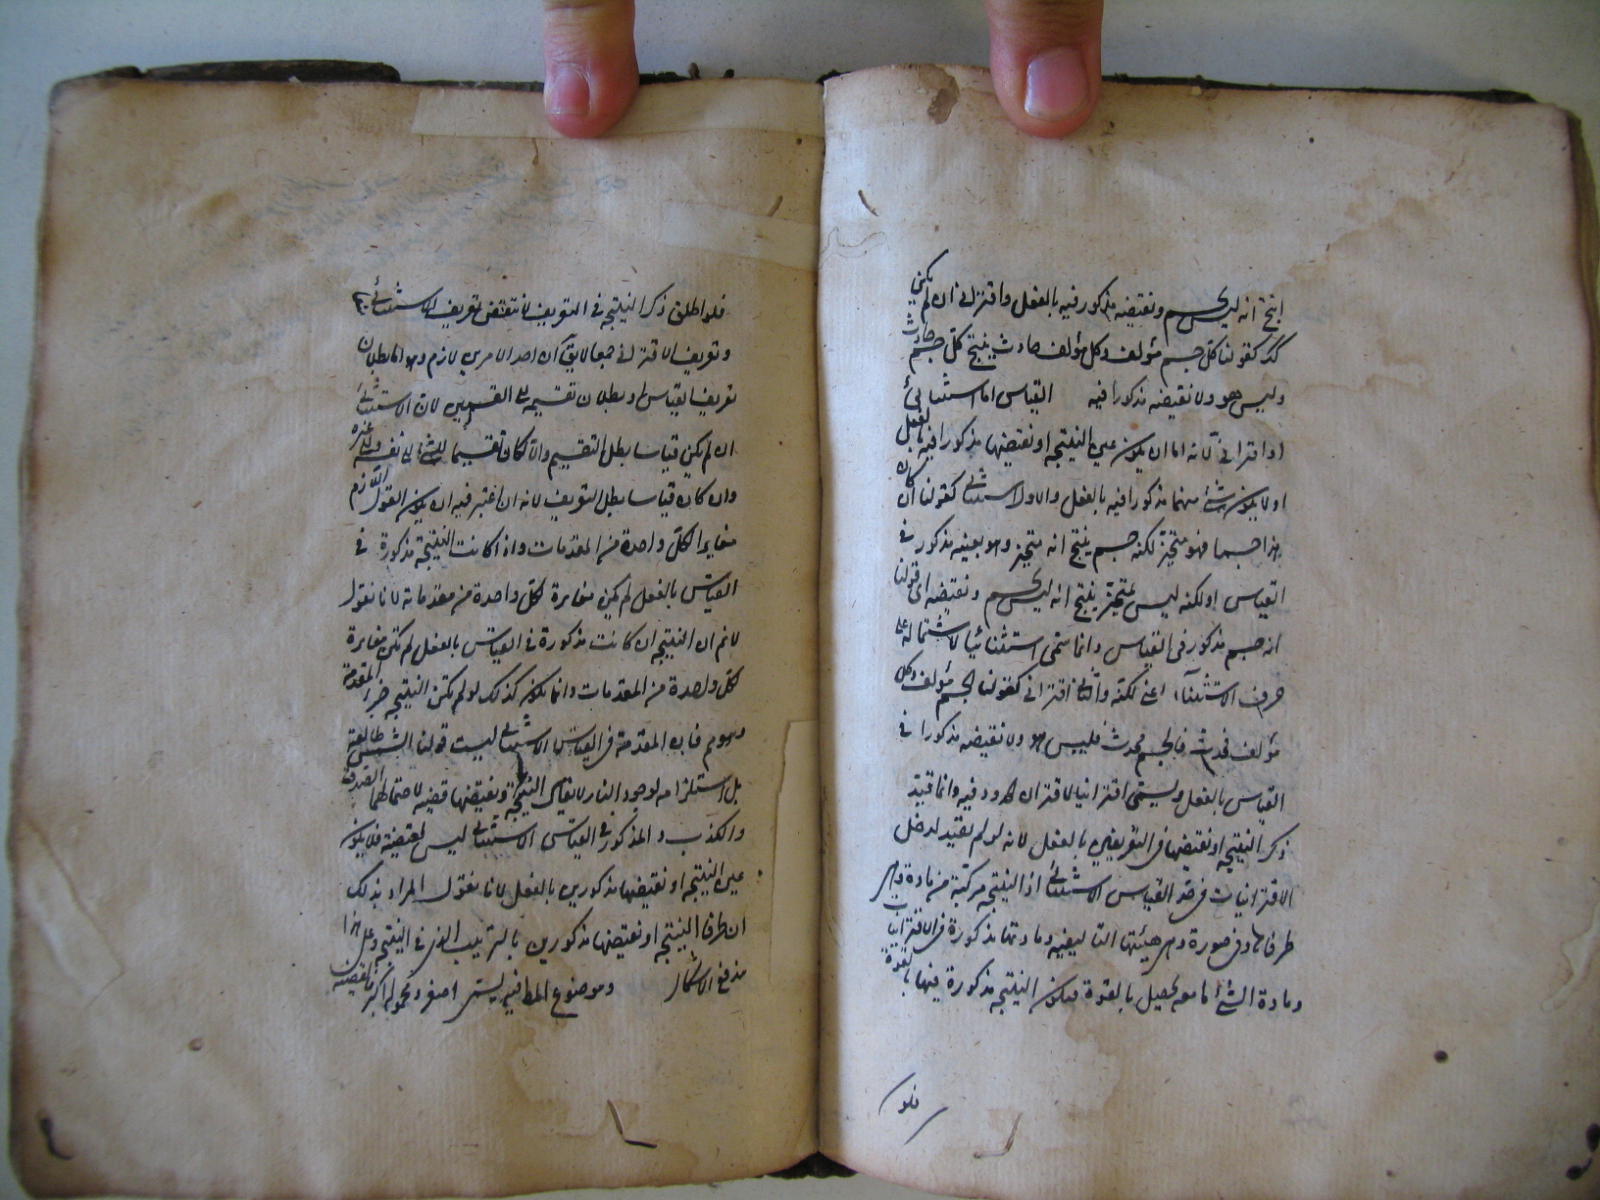 انتج انه ليس بجسم ونقيضه مذكور فيه بالفعل واقتراني ان لم يكن
كذلك كقولنا كل جسم مؤلف وكل مؤلف حادث ينتج كل جسم حادث
وليس هو ولا نقيضه مذكورا فيه القياس اما استثنائي
او اقتراني لانه اما ان يكون عين النتيجة او نقيضها مذكورا فيه بالفعل
او لا يكون شئ منهما مذكورا فيه بالفعل والاول استثنائي كقولنا ان كان
هذا جسما فهو متحيز لكنه جسم ينتج انه متحيز وهو بعينه مذكور في
القياس او لكنه ليس بمتحيز ينتج انه ليس بجسم ونقيضه اي قولنا
انه جسم مذكور في القياس وانما سمى استثنائيا لاشتماله على
حرف الاستثناء اعني لكنه والثاني اقتراني كقولنا الجسم مؤلف وكل
مؤلف محدث فالجسم محدث فليس هو ولا نقيضه مذكورا في
القياس بالفعل وليسمى اقترانيا لاقتران الحدود فيه وانما قيد
ذكر النتيجة او نقيضها في التعريفين بالفعل لانه لو لم يقيد لدخل
الاقترانيات في حد القياس الاستثنائي اذ النتيجة مركبة من مادة وهي
طرفاها ومن صورة وهي هيئتها التاليفية ومادتها مذكورة في الاقترانيات
ومادة الشئ ما معه يحصل بالقوة فيكون النتيجة مذكورة فيها بالقوة
فلو
فلو اطلق ذكر النتيجة في التعريف لانتقض تعريف الاستثنائي
وتعريف الاقتراني جمعا لا يق ان احد الامرين لازم وهو اما بطلان
تعريف القياس او بطلان تقسيمه الى القسمين لان الاستثنائي
ان لم يكن قياسا بطل التقسيم والا لكان تقسيما للشئ الى نفسه والى غيره
وان كان قياسا بطل التعريف لانه ان اعتبر فيه ان يكون القول اللازم
مغايرا لكل واحدة من المقدمات واذا كانت النتيجة مذكورة في
القياس بالفعل لم يكن مغايرة لكل واحدة من مقدماته لانا نقول
لانم ان النتيجة ان كانت مذكورة في القياس بالفعل لم تكن مغايرة
لكل واحدة من المقدمات وانما يكون كذلك لو لم يكن النتيجة جزء المقدمة
وهو مم فان المقدمة في القياس الاستثنائي ليست قولنا الشمس طالعة
بل استلزامه لوجود النهار لا يقال النتيجة ونقيضها قضية لاحتمالهما الصدق
والكذب والمذكور في القياس الاستثنائي ليس بقضية فلا يكون
عين النتيجة او نقيضها مذكورين بالفعل لانا نقول المراد بذلك
ان طرفا النتيجة او نقيضها مذكورين بالترتيب الذي في النتيجة وعلى هذا
مندفع الاشكال وموضوع المط فيه يسمى اصغر ومحموله اكبر